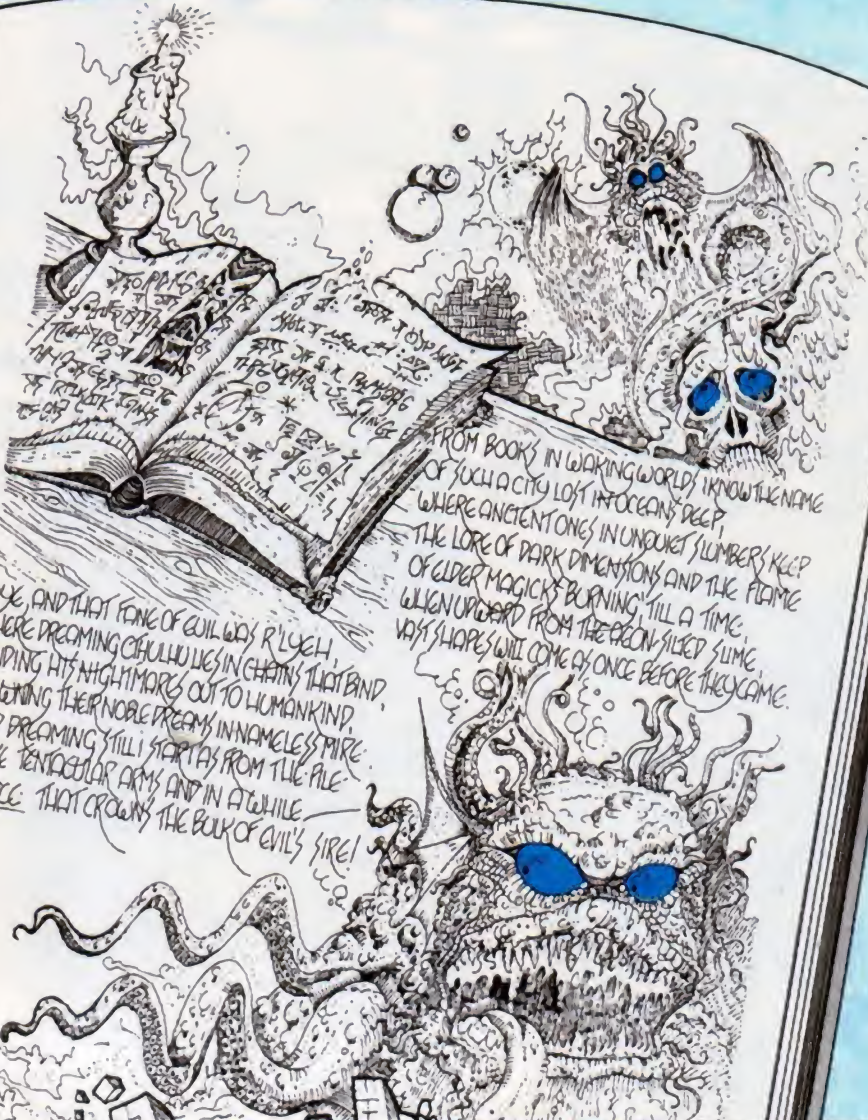 FROM BOOKS IN WAKING WORLDS I KNOW THE NAME
OF SUCH A CITY LOST IN OCEANS DEEP,
WHERE ANCIENT ONES IN UNQUIET SLUMBERS KEEP
THE LORE OF DARK DIMENSIONS AND THE FLAME
OF ELDER MAGICKS BURNING, TILL A TIME,
WHEN UPWARD FROM THE AEON-SILTED SLIME
VAST SHAPES WILL COME AS ONCE BEFORE THEY CAME.
AND THAT FANE OF EVIL WAS R'LYEH,
DREAMING CTHULHU LIES IN CHAINS THAT BIND,
HIS NIGHTMARES OUT TO HUMANKIND,
THEIR NOBLE DREAMS IN NAMELESS MIRE.
DREAMING STILL I START AS FROM THE PILE
TENTACULAR ARMS AND IN A WHILE
THAT CROWNS THE BULK OF EVIL'S SIRE!